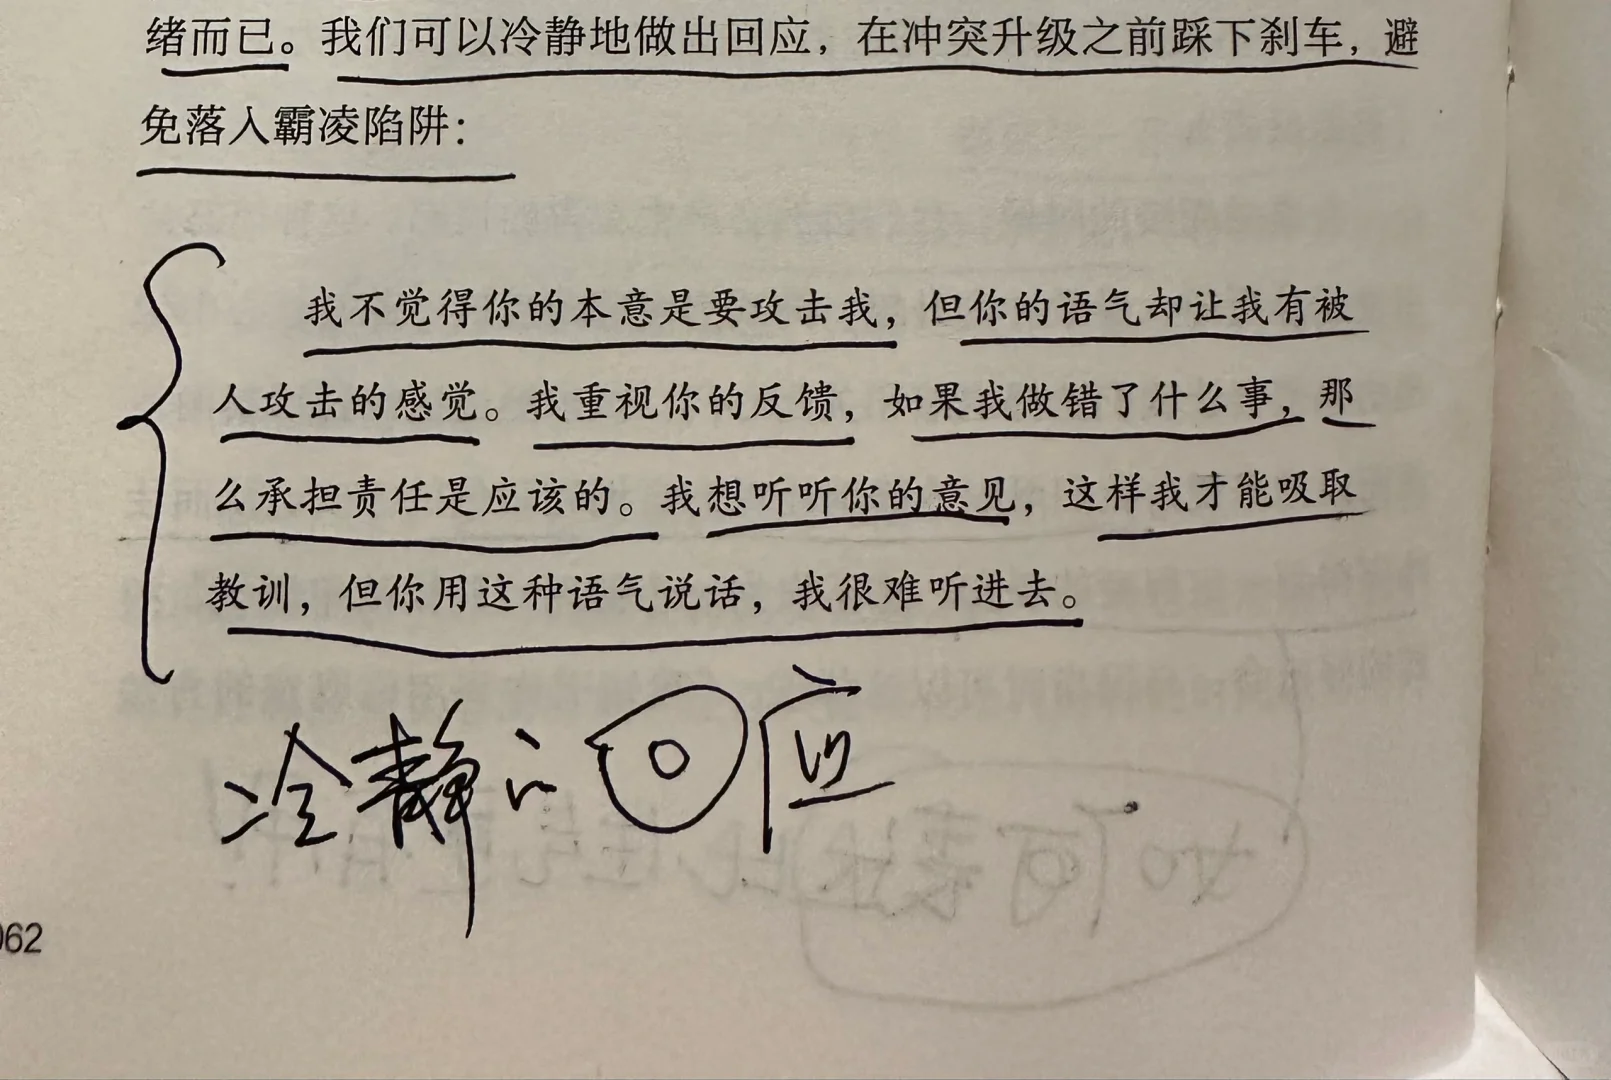 绪而已。我们可以冷静地做出回应，在冲突升级之前踩下刹车，避
免落入霸凌陷阱：
我不觉得你的本意是要攻击我，但你的语气却让我有被
人攻击的感觉。我重视你的反馈，如果我做错了什么事，那
么承担责任是应该的。我想听听你的意见，这样我才能吸取
教训，但你用这种语气说话，我很难听进去。
冷静的回应
062